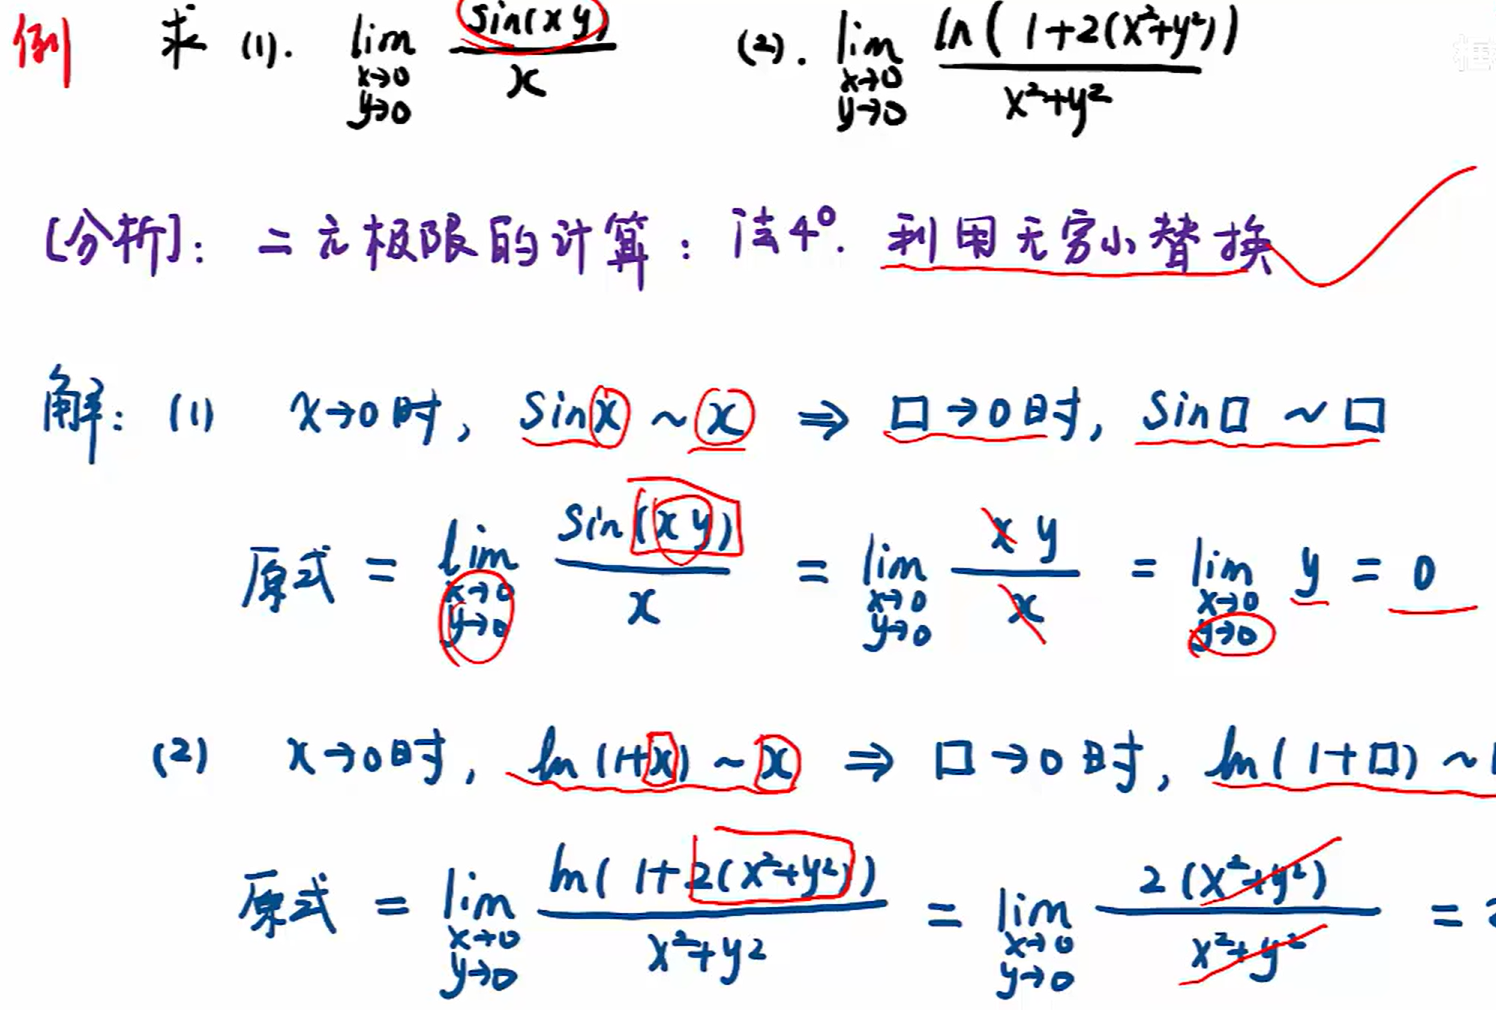 例 求 (1). lim x→0 y→0 sin(xy)/x (2). lim x→0 y→0 ln(1+2(x²+y²))/(x²+y²)
[分析]: 二元极限的计算: 法4°. 利用无穷小替换
解: (1) x→0时, sinx ~ x ⇒ □→0时, sin□ ~ □
原式 = lim x→0 y→0 sin(xy)/x = lim x→0 y→0 xy/x = lim x→0 y→0 y = 0
(2) x→0时, ln(1+x) ~ x ⇒ □→0时, ln(1+□) ~
原式 = lim x→0 y→0 ln(1+2(x²+y²))/(x²+y²) = lim x→0 y→0 2(x²+y²)/(x²+y²) =